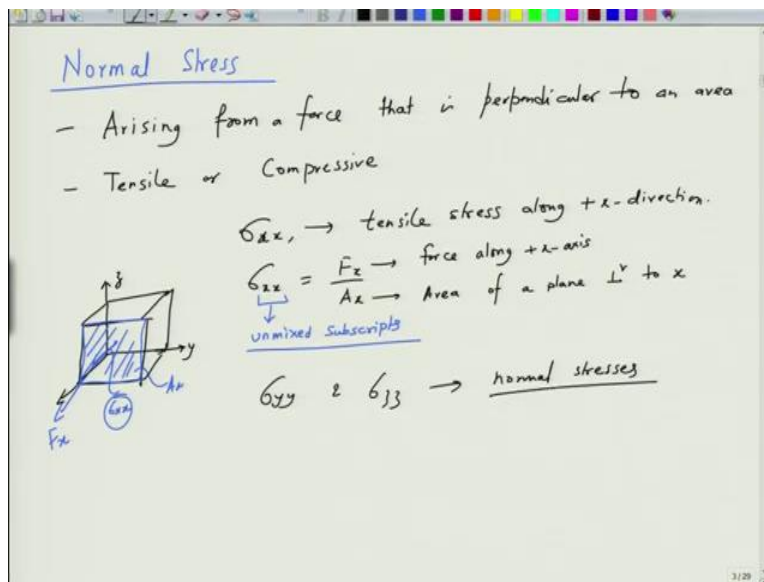 Normal Stress
- Arising from a force that is perpendicular to an area
- Tensile or Compressive
σxx, → tensile stress along +x-direction.
σxx = Fx/Ax → force along +x-axis
→ Area of a plane ⊥r to x
unmixed subscripts
z
y
Ax
σxx
Fx
σyy & σzz → normal stresses
3/29